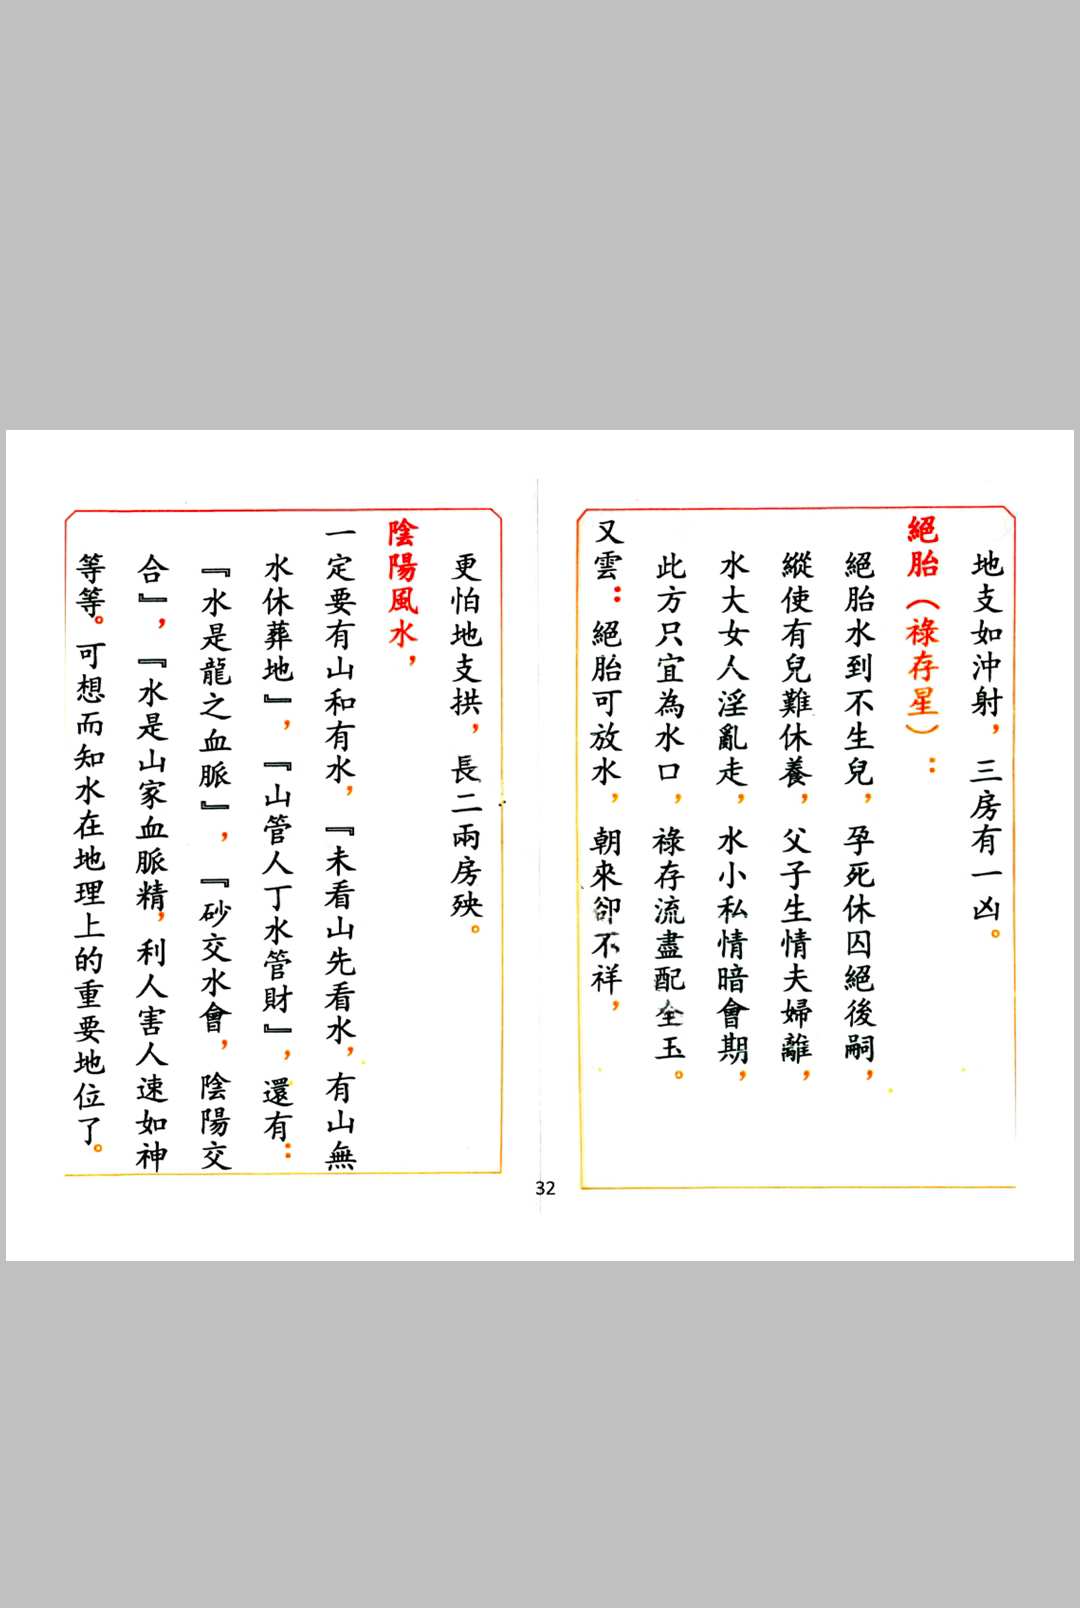 地支如沖射，三房有一凶。
絕胎（祿存星）：
絕胎水到不生兒，孕死休囚絕後嗣，
縱使有兒難休養，父子生情夫婦離，
水大女人淫亂走，水小私情暗會期，
此方只宜為水口，祿存流盡配全玉。
又雲：絕胎可放水，朝來卻不祥，
更怕地支拱，長二兩房殃。
陰陽風水，
一定要有山和有水，『未看山先看水，有山無
水休葬地』，『山管人丁水管財』，還有：
『水是龍之血脈』，『砂交水會，陰陽交
合』，『水是山家血脈精，利人害人速如神
等等。可想而知水在地理上的重要地位了。
32